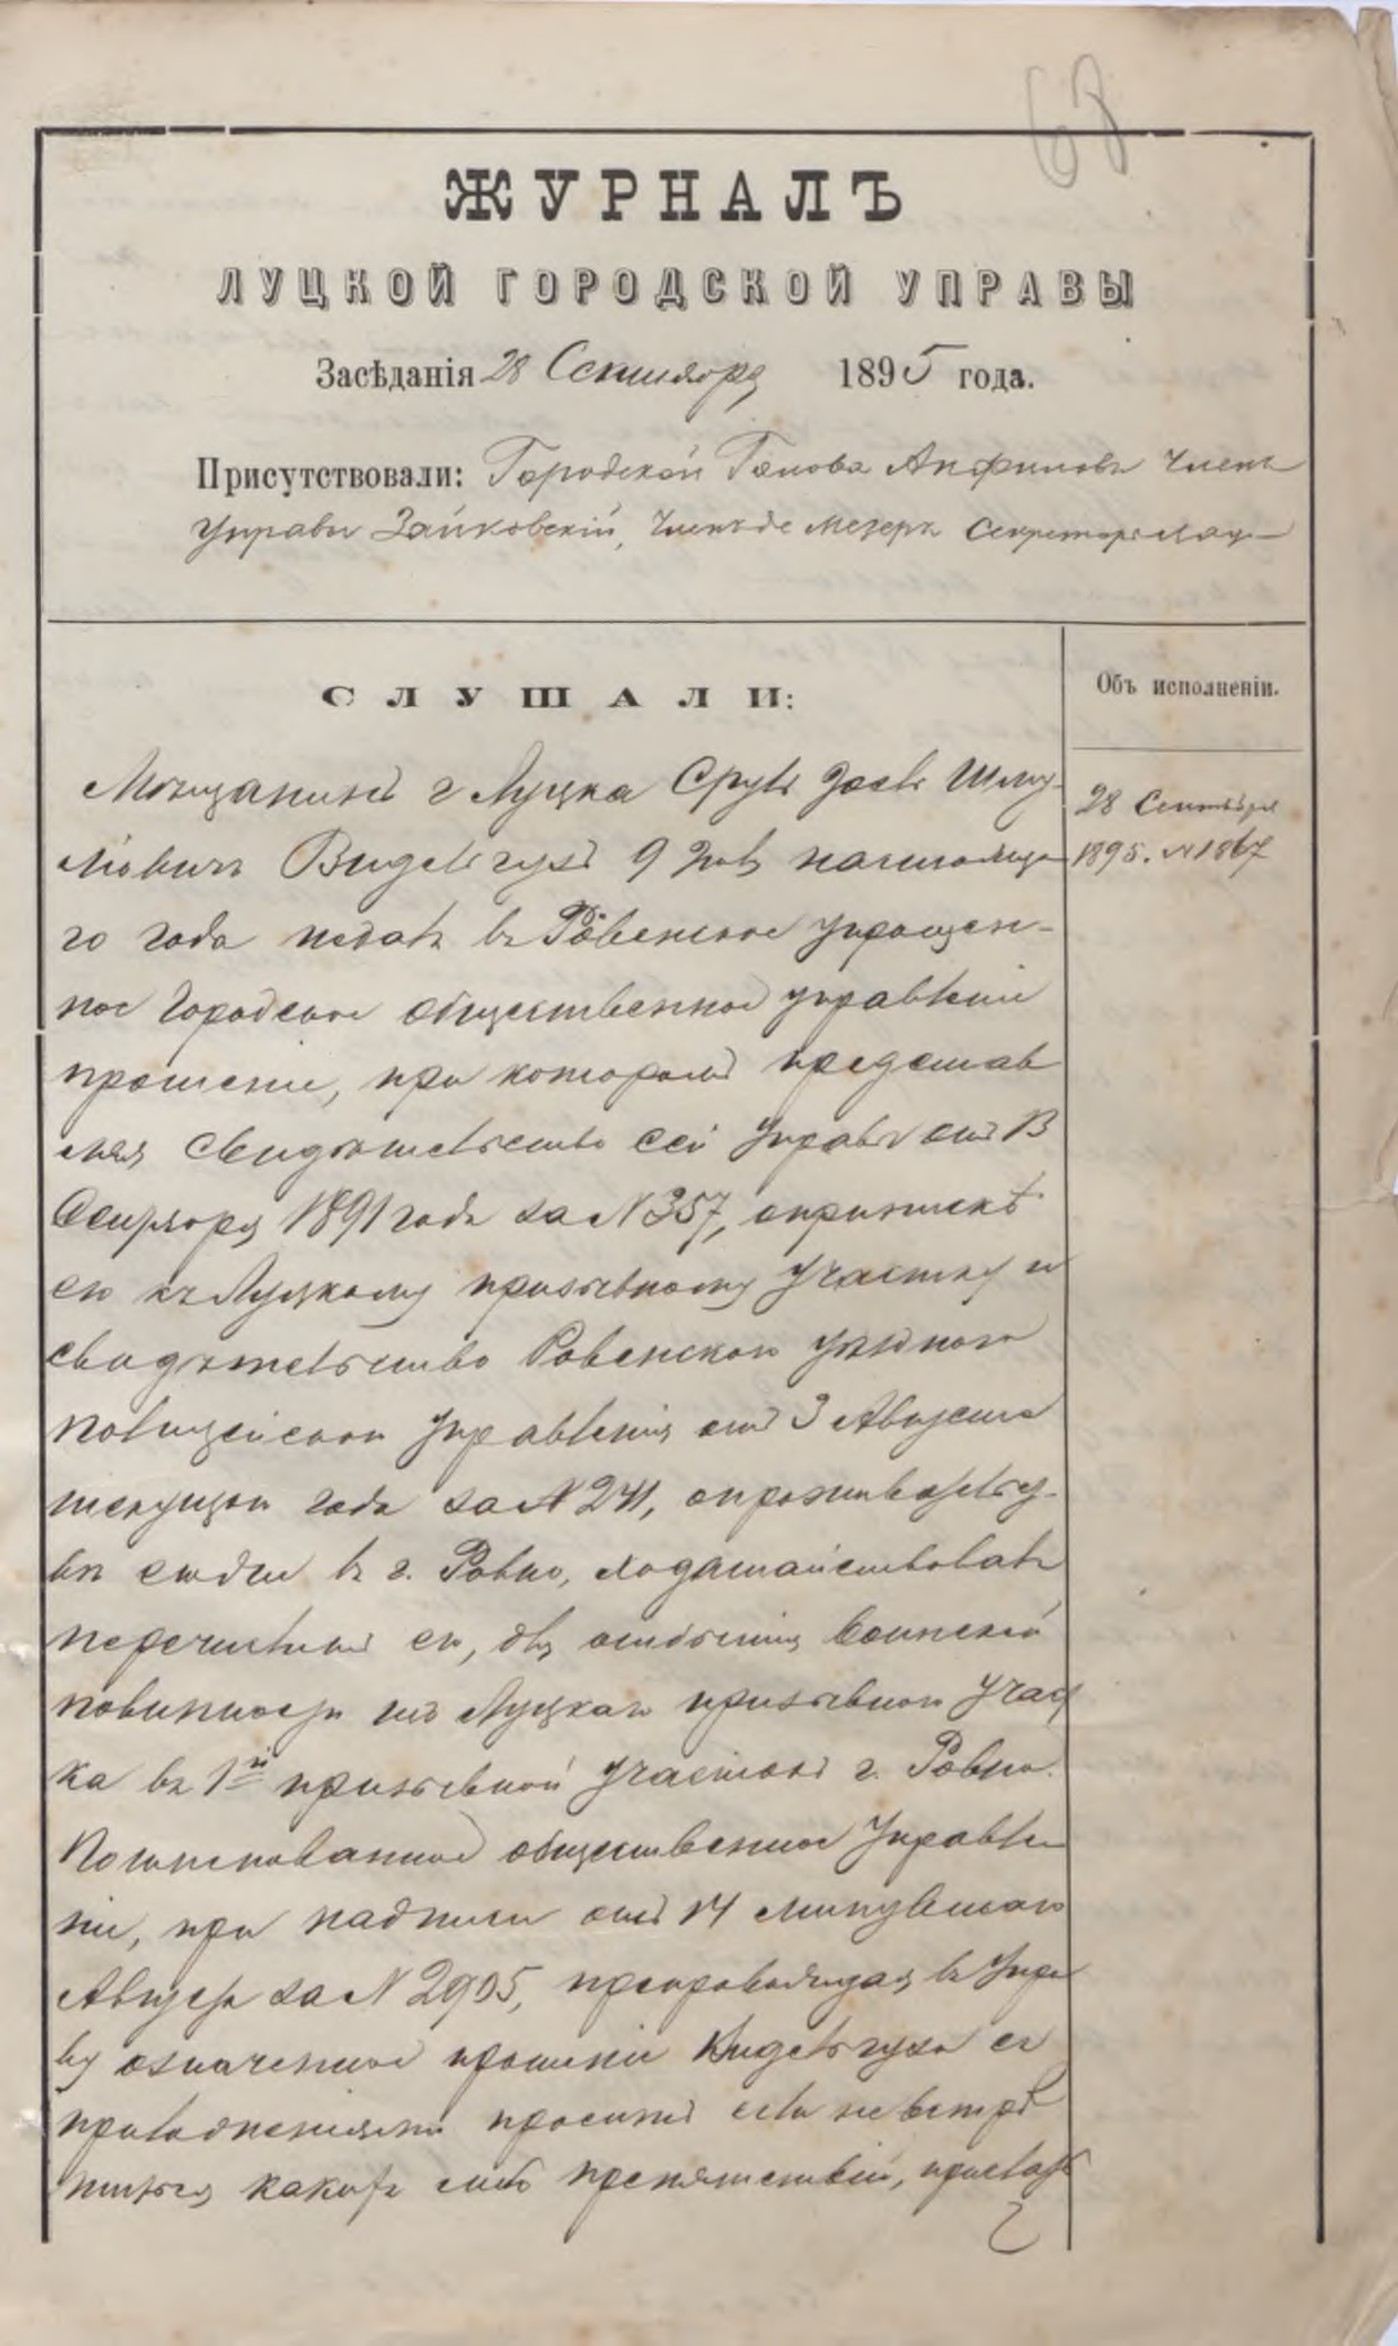 68
ЖУРНАЛЪ
ЛУЦКОЙ ГОРОДСКОЙ УПРАВЫ
Засѣданія 28 Сентября 1895 года.
Присутствовали: Городской Голова Анфиловъ Членъ
Управы Зайковскій, Членъ де Мезеръ Секретарь
СЛУШАЛИ:
Объ исполненіи.
28 Сентября
1895. № 1867
Мѣщанинъ г Луцка Сруль Іосль Шму-
лiовичъ 9 Іюля настояща
го года подалъ въ Ровенское упрощен-
ное Городское общественное управленіе
прошеніе, при которомъ представ
ляя свидѣтельство сей Управы отъ 13
1891 года за № 357, о припискѣ
его къ Луцкому призывному участку и
свидѣтельство Ровенскаго уѣзднаго
полицейскаго Управленія отъ 3 Августа
текущаго года за № 241, о проживательст-
вѣ въ г. Ровно, ходатайствовалъ
перечисленіи его, для отбытія воинской
повинности изъ Луцкаго призывнаго участ
ка въ 1й призывной участокъ г. Ровно.
Поименованное общественное Управле
ніе, при надписи отъ 14 минувшаго
Августа за № 2905, препровождая въ Упра
ву означенное прошеніе съ
приложеніями проситъ если не встрѣ
тится какихъ либо препятствій, прислать